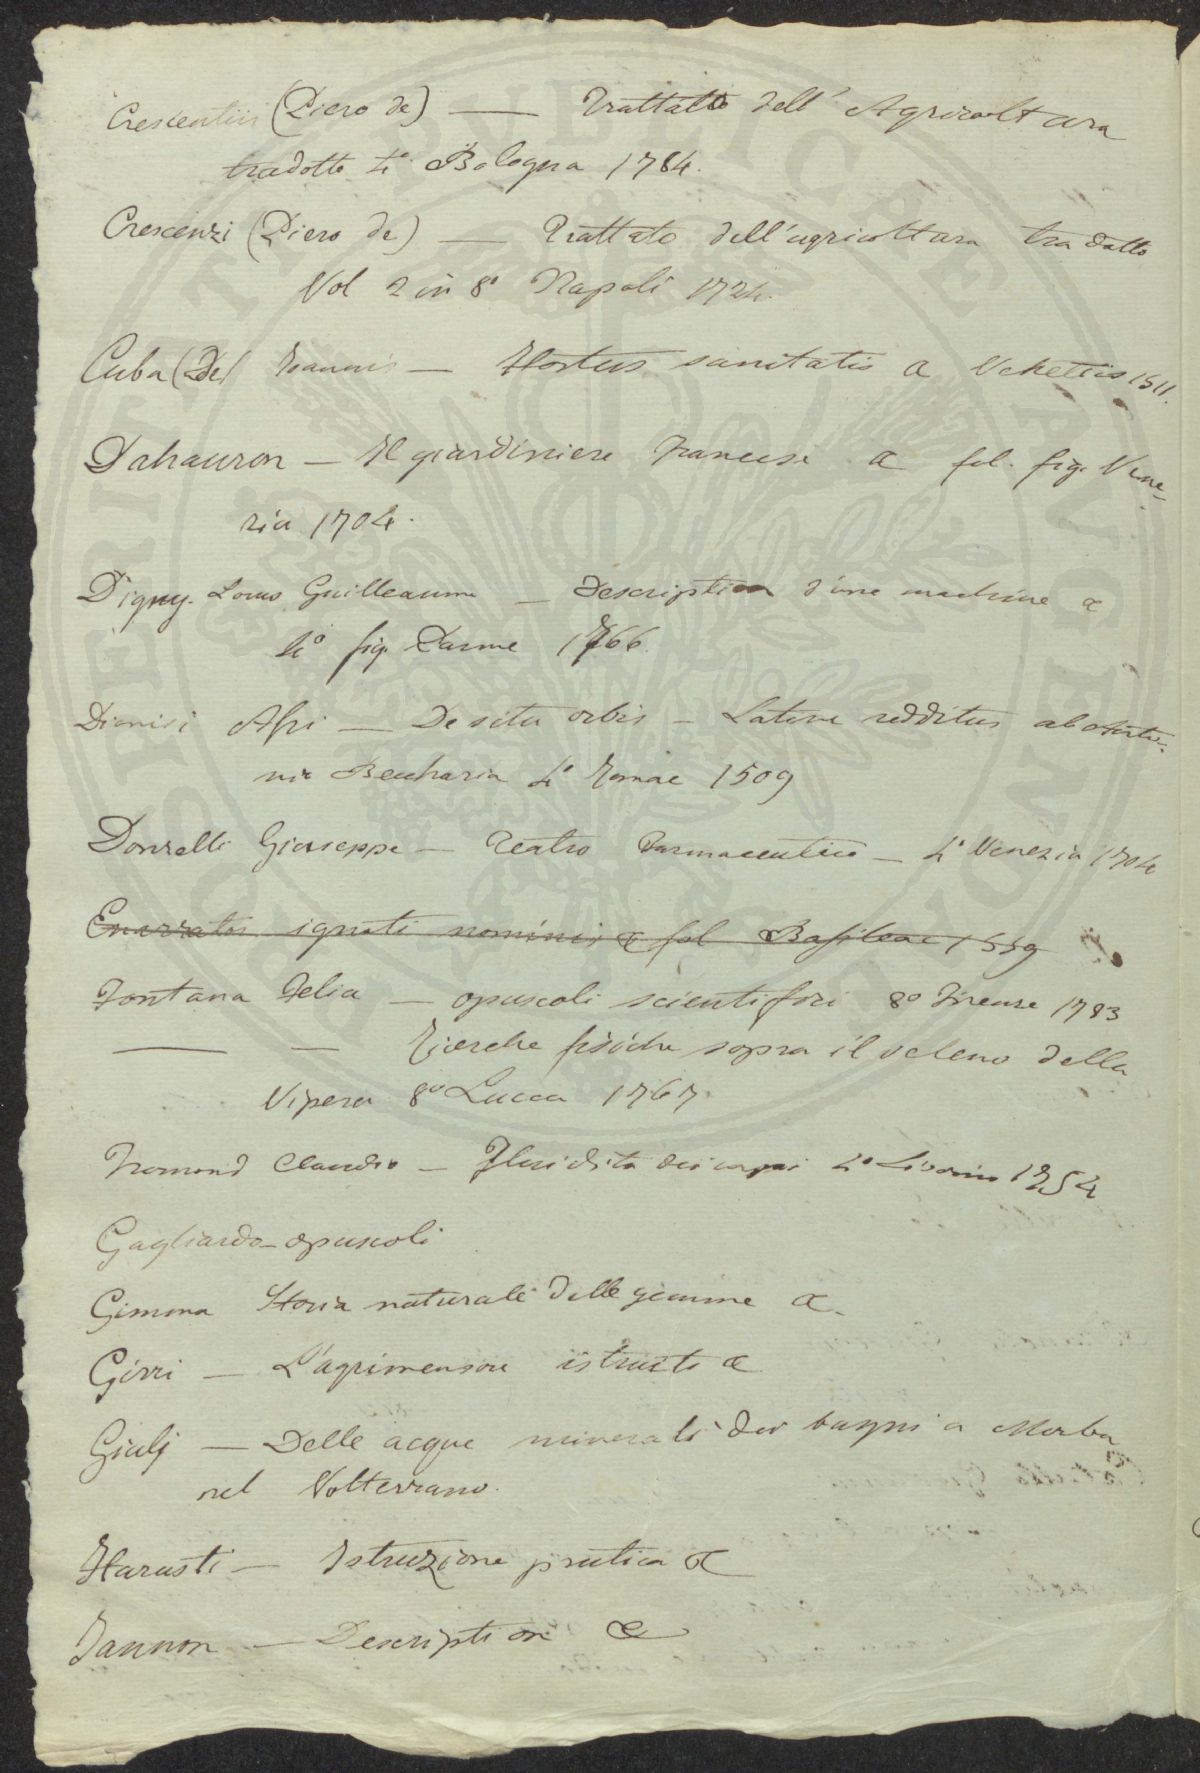 Crescentiis (Piero de) — Trattato dell' Agricoltura
tradotto 4° Bologna 1784.
Crescenzi (Piero de) — Trattato dell'agricoltura tradotto
Vol 2 in 8° Napoli 1724.
Cuba (De) Joannis — Hortus sanitatis & Venettis 1511.
Dahauron — Il giardiniere francese & fol. fig. Vene-
zia 1704.
Digny. Louis Guilleaume — Description d'une machine &
4° fig. Parme 1766.
Dionisi Afri — De situ orbis — Latine redditus ab Anto-
nio Beccharia 4° Romae 1509
Donzelli Giuseppe — Teatro Farmaceutico — 4° Venezia 1704
Enarratis ignoti nominis & fol Basileae 1559
Fontana Felia — opuscoli scientifici 8° Firenze 1783
— — Ricerche fisiche sopra il veleno della
Vipera 8° Lucca 1767.
Fromond Claudio — Fluidità dei corpi 4° Livorno 1754
Gagliardo — opuscoli
Gimma Storia naturale delle gemme &.
Ginni — L'agrimensore istruito &
Giulj — Delle acque minerali dei bagni a Morba
nel Volterrano.
Harasti — Istruzione pratica &
Jannon — Description &
SOSPERITATI PVBLICAE AVGENDAE